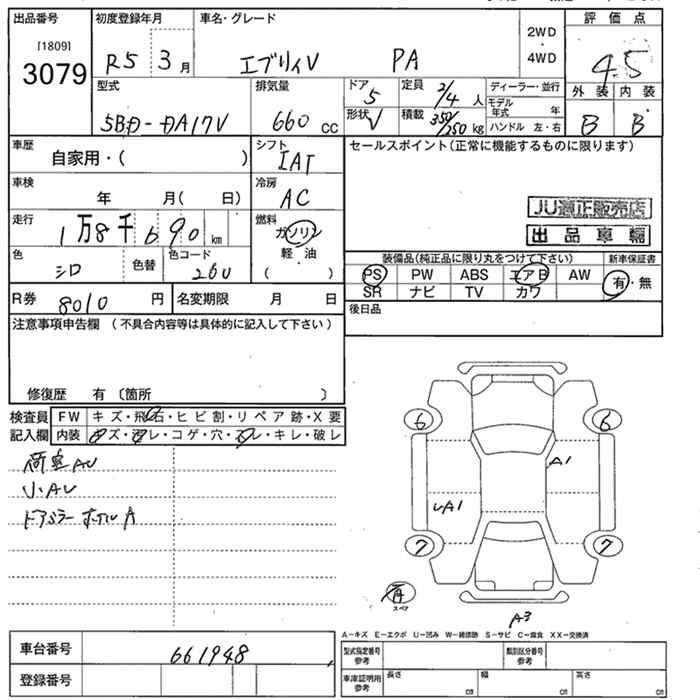 出品番号
[1809]
3079
初度登録年月
R5 3月
車名・グレード
エブリィV PA
2WD
・
4WD
評価点
4.5
外装 内装
B B
型式
5BD-DA17V
排気量
660 cc
ドア
5
形状
V
定員
2/4 人
積載
350/250 kg
ディーラー・並行
モデル年式 年
ハンドル 左・右
車歴
自家用・( )
シフト
IAT
車検
年 月( 日)
冷房
AC
走行
1万8千690km
燃料
ガソリン
軽・油
( )
色
シロ
色替
色コード
26U
R券 8010 円
名変期限 月 日
セールスポイント(正常に機能するものに限ります)
JU適正販売店
出品車輌
装備品(純正品に限り丸をつけて下さい)
新車保証書
PS PW ABS エアB AW
SR ナビ TV カワ
有・無
後日品
注意事項申告欄 (不具合内容等は具体的に記入して下さい)
修復歴 有 〔箇所 〕
検査員記入欄
FW キズ・飛石・ヒビ割・リペア跡・X要
内装 キズ・汚レ・コゲ・穴・スレ・キレ・破レ
荷室AU
小AU
ドアミラー ホイルA
6 6
A1
UA1
7 7
スペア
A3
A−キズ E−エクボ U−凹み W−補修跡 S−サビ C−腐食 XX−交換済
車台番号 661948
登録番号
型式指定番号参考
類別区分番号参考
車庫証明用参考
長さ cm
幅 cm
高さ cm